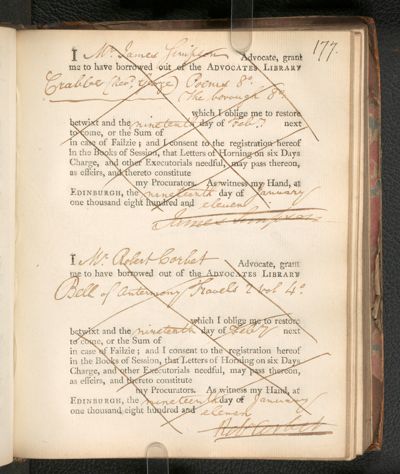 177.
I Mr. James Simpson Advocate, grant
me to have borrowed out of the ADVOCATES LIBRARY
Crabbe (Revd. George) Poems 8o.
The borough 8o.
which I oblige me to restore
betwixt and the nineteenth day of Feby. next
to come, or the Sum of
in case of Failzie; and I consent to the registration hereof
in the Books of Session, that Letters of Horning on six Days
Charge, and other Executorials needful, may pass thereon,
as effeirs, and thereto constitute
my Procurators. As witness my Hand, at
EDINBURGH, the nineteenth day of January
one thousand eight hundred and eleven
James Simpson
I Mr. Robert Corbet Advocate, grant
me to have borrowed out of the ADVOCATES LIBRARY
Bell of Antermony Travels 2 vol 4o.
which I oblige me to restore
betwixt and the nineteenth day of Feby next
to come, or the Sum of
in case of Failzie; and I consent to the registration hereof
in the Books of Session, that Letters of Horning on six Days
Charge, and other Executorials needful, may pass thereon,
as effeirs, and thereto constitute
my Procurators. As witness my Hand, at
EDINBURGH, the nineteenth day of January
one thousand eight hundred and eleven
Robt Corbet